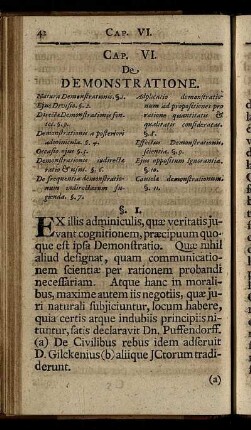 42 CAP. VI.
CAP. VI.
De
DEMONSTRATIONE.
Natura Demonstrationis. §. 1.
Ejus Divisio. §. 2.
Directa Demonstrationis
§. 3.
Demonstrationis a posteriori
adminicula. §. 4.
Occasio §. 5.
Demonstrationis indirectæ
ratio & usus. §. 6.
De frequentia demonstratio-
num indirectarum fu-
gienda. §. 7.
demonstratio-
num ad propositiones pro
ratione quantitatis &
qualitatis consideratas.
§. 8.
Effectus Demonstrationis,
scientia. §. 9.
Ejus oppositum Ignorantia.
§. 10.
Cautela demonstrationum.
§. 11.
§. I.
EX illis adminiculis, quæ veritatis ju-
vant cognitionem, præcipuum quo-
que est ipsa Demonstratio. Quæ nihil
aliud designat, quam communicatio-
nem scientiæ per rationem probandi
necessariam. Atque hanc in morali-
bus, maxime autem iis negotiis, quæ ju-
ri naturali subjiciuntur, locum habere,
quia certis atque indubiis principiis ni-
tuntur, fatis declaravit Dn. Puffendorff.
(a) De Civilibus rebus idem adseruit
D. Gilckenius (b) aliique JCtorum tradi-
derunt.
(a)